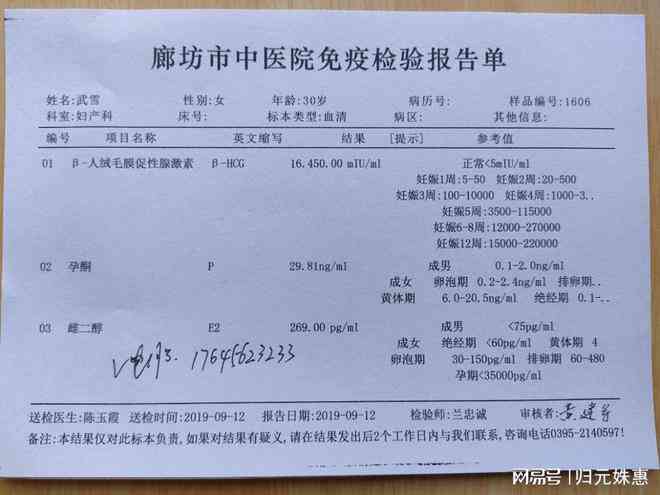 廊坊市中医院免疫检验报告单
姓名:武雪 性别:女 年龄:30岁 病历号: 样品编号:1606
科室:妇产科 床号: 标本类型:血清 病区: 其他信息:
编号 项目名称 英文缩写 结果 [提示] 参考值
01 β-人绒毛膜促性腺激素 β-HCG 16.450.00 mIU/ml 正常<5mIU/ml
妊娠1周:5-50 妊娠2周:20-500
妊娠3周:100-10000 妊娠4周:1000-3..
妊娠5周:3500-115000
妊娠6-8周:12000-270000
妊娠12周:15000-220000
02 孕酮 P 29.81ng/ml 成男 0.1-2.0ng/ml
成女 卵泡期 0.2-2.4ng/ml 排卵期..
黄体期 6.0-20.5ng/ml 绝经期 0.1-..
03 雌二醇 E2 269.00 pg/ml 成男 <75pg/ml
成女 绝经期 <60pg/ml 黄体期 4
卵泡期 30-150pg/ml 排卵期 60-480
孕期<35000pg/ml
17645623233
送检医生:陈玉霞 送检时间:2019-09-12 报告日期:2019-09-12 检验师:兰忠诚 审核者:
备注:本结果仅对此标本负责,如果对结果有疑义,请在结果发出后2个工作日内与我们联系,咨询电话0395-2140597!
网易号|归元姝惠